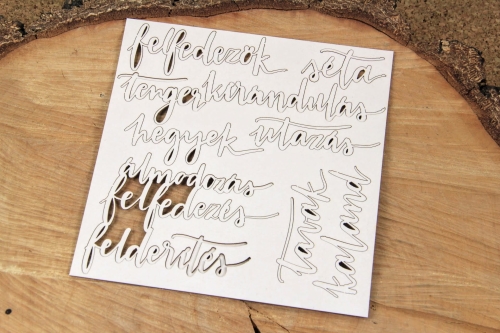 felfedezők séta
tenger kirándulás
hegyek utazás
álmodozás
felfedezés
felderítés
tavak
kaland